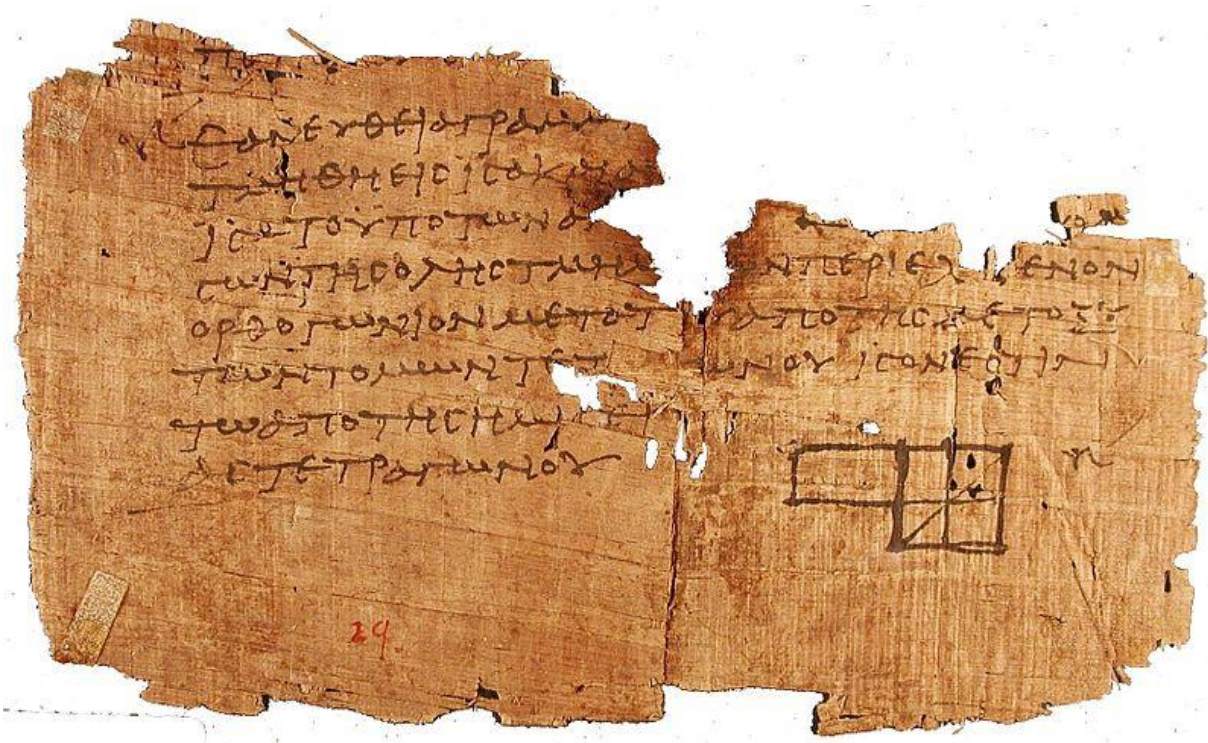 ΕΑΝ ΕΥΘΕΙΑ ΓΡΑΜΜ
ΤΜΗΘΗ ΕΙϹ ΙϹΑ ΚΑΙ Α
ΙϹΑ ΤΟ ΥΠΟ ΤΩΝ ΑΝ
ϹΩΝ ΤΗϹ ΟΛΗϹ ΤΜΗΜ Ν ΠΕΡΙΕΧ ΜΕΝΟΝ
ΟΡΘΟΓΩΝΙΟΝ ΜΕΤΑ Τ ΑΠΟ ΤΗϹ ΜΕΤΟΞΥ
ΤΩΝ ΤΟΜΩΝ ΤΕΤ ΩΝΟΥ ΙϹΟΝ ΕϹΤΙΝ
ΤΩ ΑΠΟ ΤΗϹ ΗΜΙ
ΑϹ ΤΕΤΡΑΓΩΝΟΥ
29